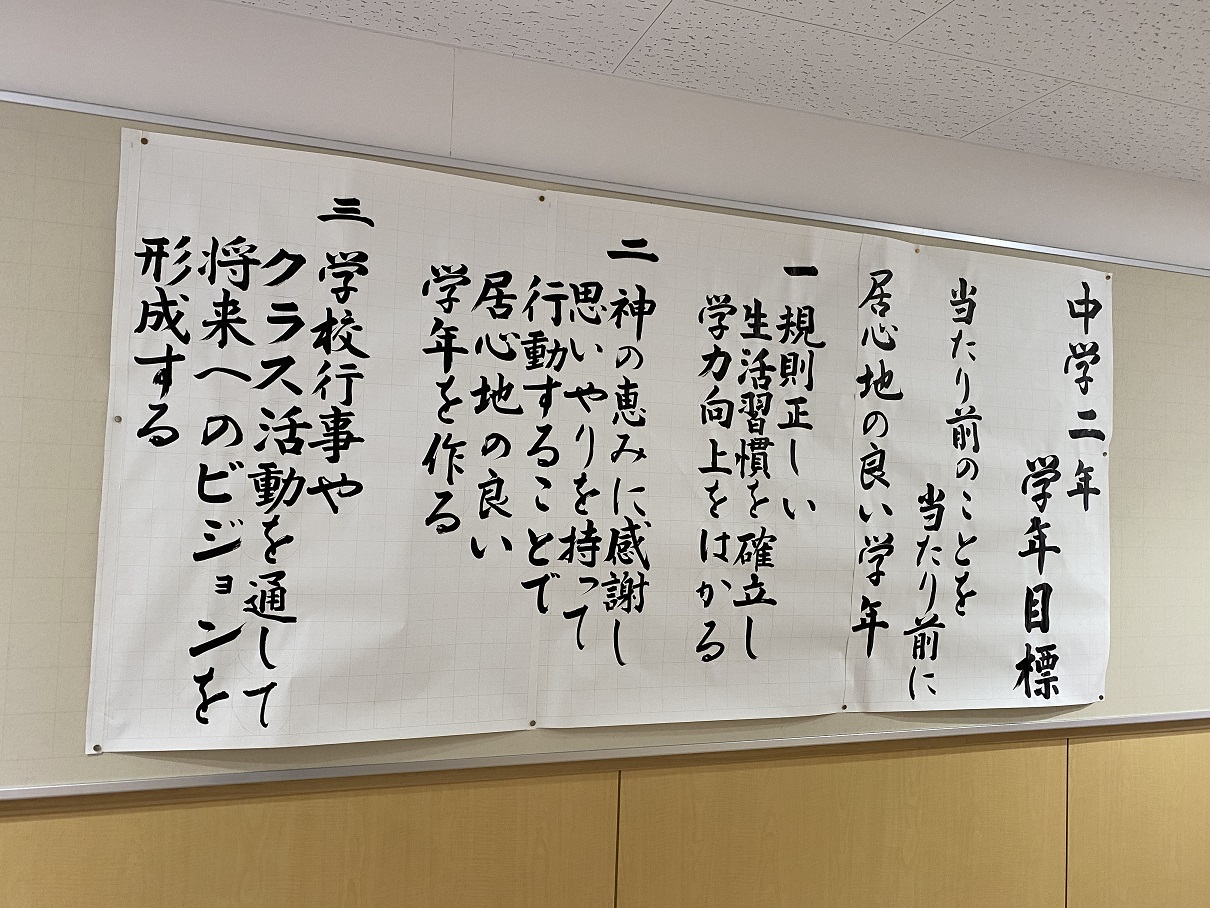 中学二年
学年目標
当たり前のことを
当たり前に
居心地の良い学年
一 規則正しい
生活習慣を確立し
学力向上をはかる
二 神の恵みに感謝し
思いやりを持って
行動することで
居心地の良い
学年を作る
三 学校行事や
クラス活動を通して
将来へのビジョンを
形成する